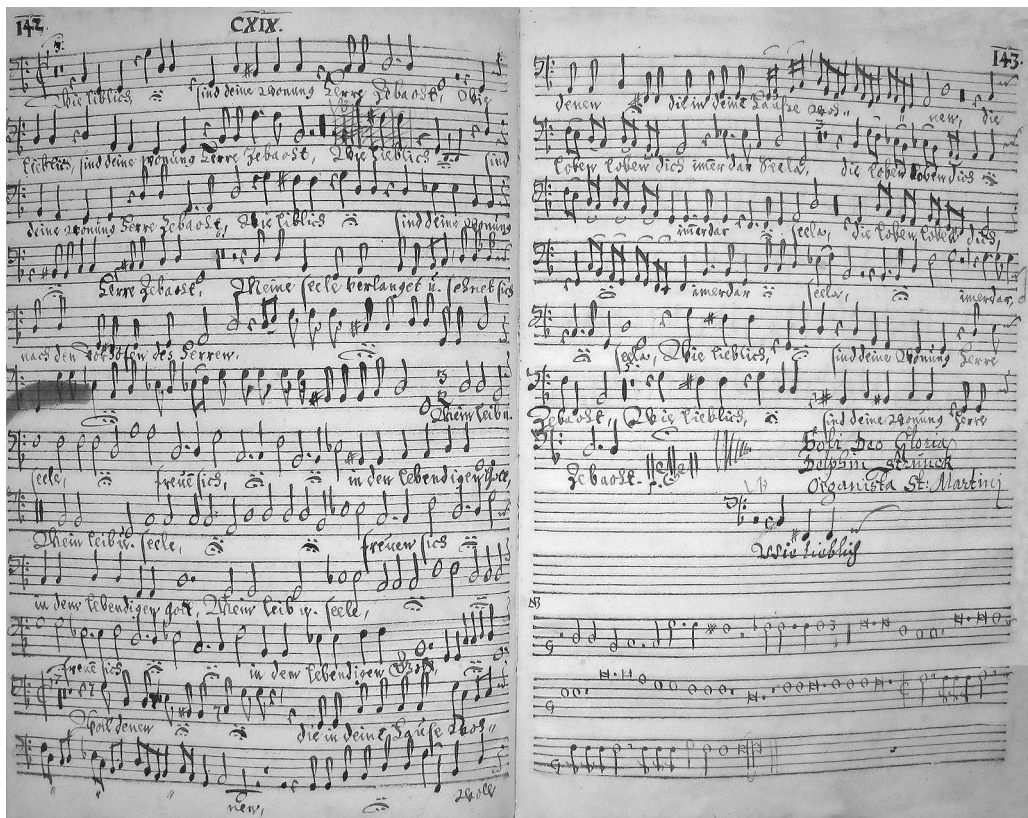 142
CXIX.
Wie liblich sind deine Wonung Herre Zebaoht, Wie
lieblich, sind deine wonung Herre Zebaoht, Wie lieblich sind
deine wonung Herre Zebaoht, Wie liblich sind deine Wonung
Herre Zebaoht, Meine seele verlanget u. sehnet sich
nach den Vorhöfen des Herren,
Mein leib u.
seele, freue sich, in dem lebendigen Gott,
Mein leib u. seele, freuen sich
in dem lebendigen gott, Mein leib u. seele,
freue sich in dem lebendigen Gott,
Woll denen die in deine Hause Woh-
nen, Woll
143.
denen die in deine Hause woh- nen, die
loben loben dich imerdar Seela, die loben loben dich
imerdar seela, die loben loben dich,
imerdar seela, imerdar,
seela, Wie lieblich, sind deine Wonung Herre
Zebaoht, Wie lieblich, sind deine wonung Herre
Zebaoht.
Soli Deo Gloria
Delphin Strunck
Organista St: Martinij
Wie lieblich
NB